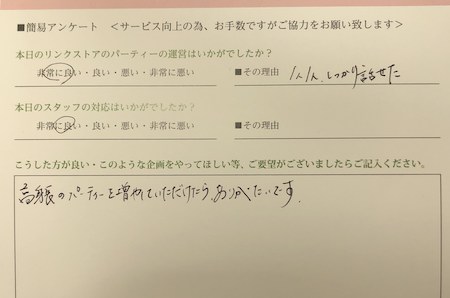 ■簡易アンケート <サービス向上の為、お手数ですがご協力をお願い致します>
本日のリンクストアのパーティーの運営はいかがでしたか?
非常に良い・良い・悪い・非常に悪い ■その理由 1人1人、しっかり話せた
本日のスタッフの対応はいかがでしたか?
非常に良い・良い・悪い・非常に悪い ■その理由
こうした方が良い・このような企画をやってほしい等、ご要望がございましたらご記入ください。
高身長のパーティーを増やしていただけたら、ありがたいです。